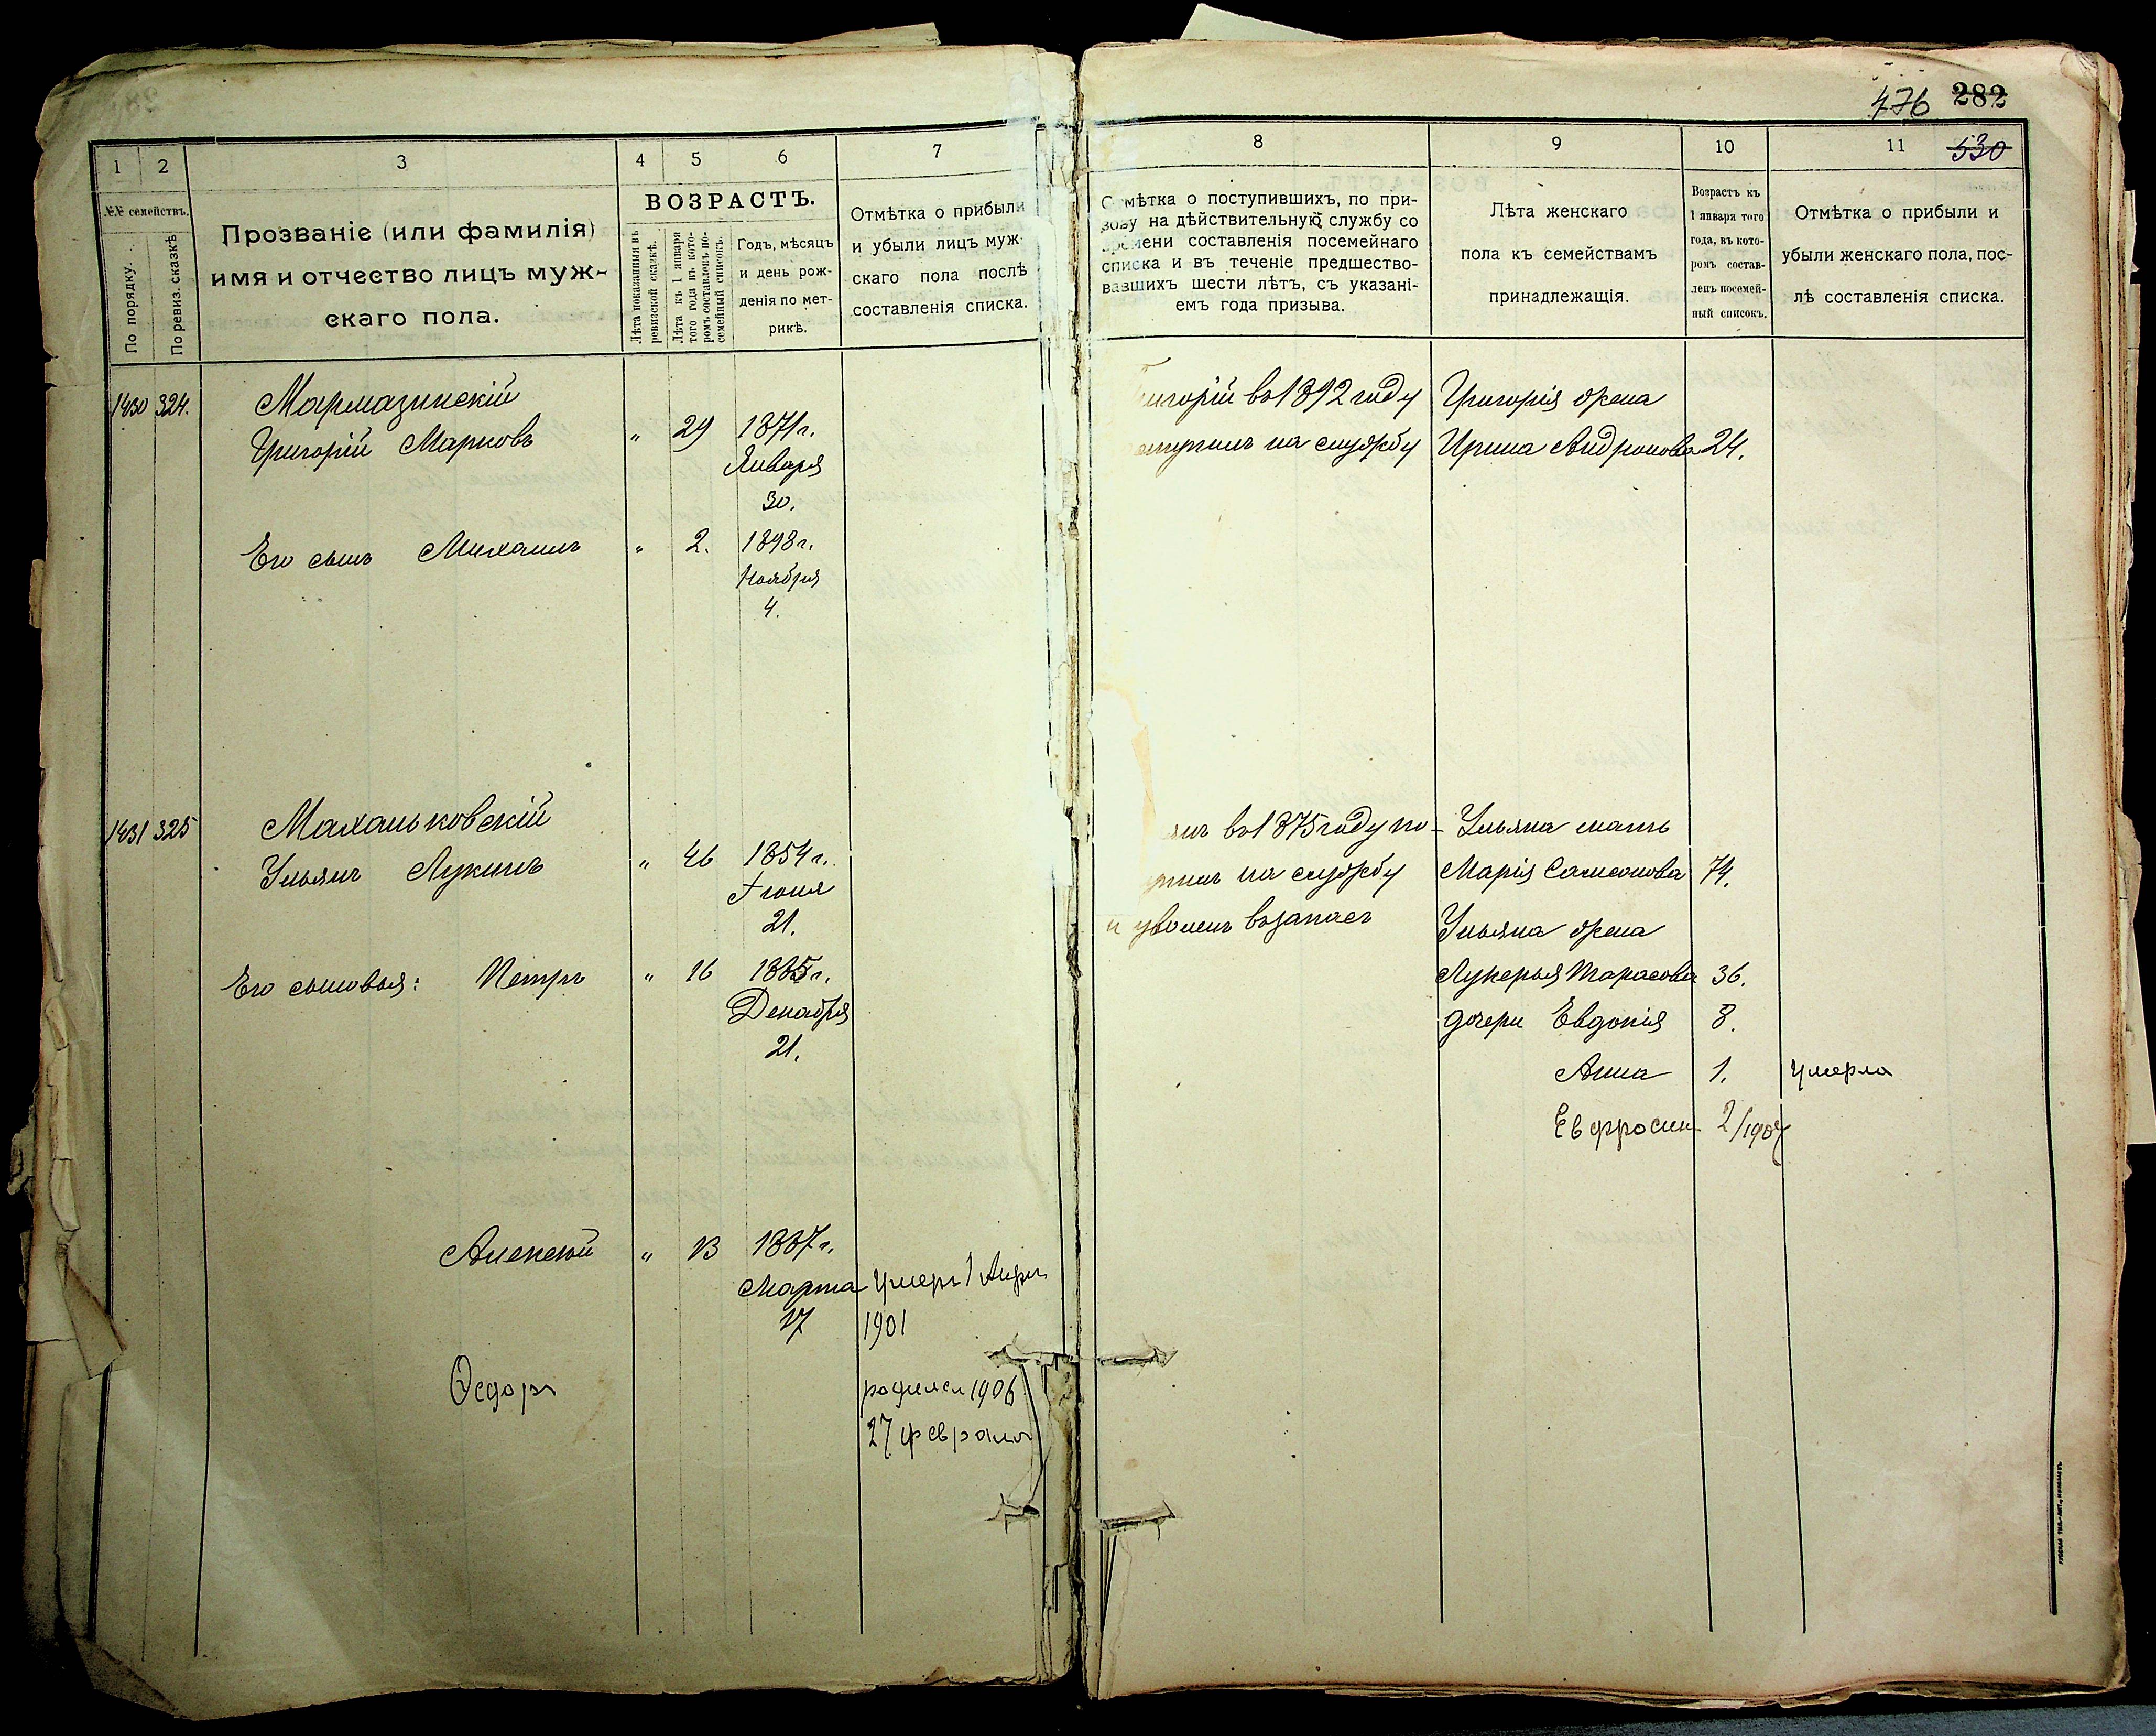 476 282
530
1 2 3 4 5 6 7
№№ семействъ.
По порядку.
По ревиз. сказкѣ
Прозваніе (или фамилія)
имя и отчество лицъ муж-
скаго пола.
ВОЗРАСТЪ.
Лѣта показанныя въ
ревизской сказкѣ.
Лѣта къ 1 января
того года въ кото-
ромъ составленъ по-
семейный списокъ.
Годъ, мѣсяцъ
и день рож-
денія по мет-
рикѣ.
Отмѣтка о прибыли
и убыли лицъ муж-
скаго пола послѣ
составленія списка.
1430 324. Мармазинскій
Григорій Марковъ " 29 1871 г.
Января
30.
Его сынъ Михаилъ " 2. 1898 г.
Ноября
4.
1431 325 Маханьковскій
Ульянъ Лукинъ " 46 1854 г.
Іюня
21.
Его сыновья: Петръ " 16 1885 г.
Декабря
21.
Алексѣй " 13 1887 г.
Марта умеръ 1 Апрл
17 1901
Ѳедоръ родился 1906
27 февраля
8 9 10 11
Отмѣтка о поступившихъ, по при-
зову на дѣйствительную службу со
времени составленія посемейнаго
списка и въ теченіе предшество-
вавшихъ шести лѣтъ, съ указані-
емъ года призыва.
Лѣта женскаго
пола къ семействамъ
принадлежащія.
Возрастъ къ
1 января того
года, въ кото-
ромъ состав-
ленъ посемей-
ный списокъ.
Отмѣтка о прибыли и
убыли женскаго пола, пос-
лѣ составленія списка.
Григорій въ 1892 году Григорія жена
поступилъ на службу Ирина Андронова 24.
въ 1875 году по- Ульяна мать
на службу Марія Самсонова 74.
и уволенъ въ запасъ Ульяна жена
Лукерья Тарасова 36.
дочери Евдокія 8.
Анна 1. умерла
Евфросин 2/1904